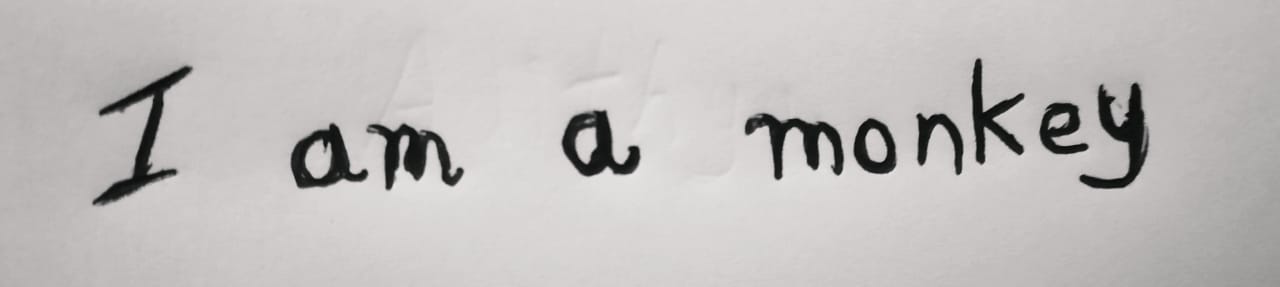 I am a monkey